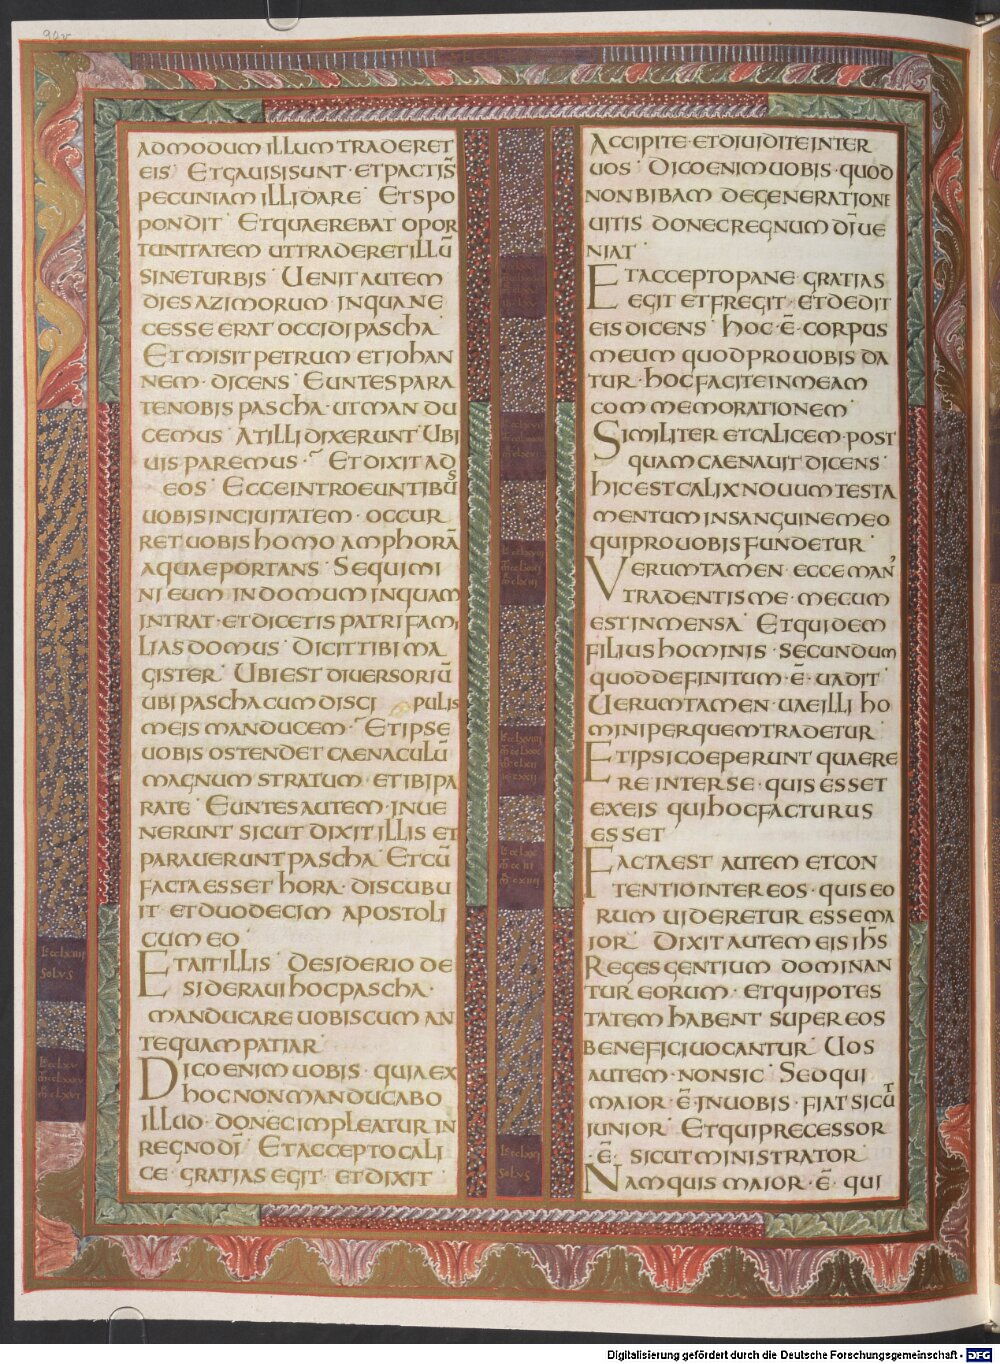 90v
ADMODUM ILLUM TRADERET
EIS · ET GAUISI SUNT · ET PACTI S̄
PECUNIAM ILLI DARE · ET SPO
PONDIT · ET QUAEREBAT OPOR
TUNITATEM UT TRADERET ILLŪ
SINE TURBIS · UENIT AUTEM
DIES AZIMORUM · IN QUA NE
CESSE ERAT OCCIDI PASCHA ·
ET MISIT PETRUM ET IOHAN
NEM · DICENS · EUNTES PARA
TE NOBIS PASCHA · UT MANDU
CEMUS · AT ILLI DIXERUNT · UBI
UIS PAREMUS · ET DIXIT AD
EOS · ECCE INTROEUNTIBUS
UOBIS IN CIUITATEM · OCCUR
RET UOBIS HOMO AMPHORĀ
AQUAE PORTANS · SEQUIMI
NI EUM IN DOMUM IN QUAM
INTRAT · ET DICETIS PATRI FAMI
LIAS DOMUS · DICIT TIBI MA
GISTER · UBI EST DIUERSORIŪ
UBI PASCHA CUM DISCI PULIS
MEIS MANDUCEM · ET IPSE
UOBIS OSTENDET CAENACULŪ
MAGNUM STRATUM · ET IBI PA
RATE · EUNTES AUTEM · INUE
NERUNT SICUT DIXIT ILLIS ET
PARAUERUNT PASCHA · ET CŪ
FACTA ESSET HORA · DISCUBU
IT · ET DUODECIM APOSTOLI
CUM EO ·
ET AIT ILLIS · DESIDERIO DE
SIDERAUI HOC PASCHA ·
MANDUCARE UOBISCUM AN
TEQUAM PATIAR ·
DICO ENIM UOBIS · QUIA EX
HOC NON MANDUCABO
ILLUD · DONEC IMPLEATUR IN
REGNO DĪ · ET ACCEPTO CALI
CE · GRATIAS EGIT · ET DIXIT ·
ACCIPITE · ET DIUIDITE INTER
UOS · DICO ENIM UOBIS · QUOD
NON BIBAM DE GENERATIONE
UITIS DONEC REGNUM DĪ UE
NIAT ·
ET ACCEPTO PANE · GRATIAS
EGIT ET FREGIT · ET DEDIT
EIS DICENS · HOC · Ē · CORPUS
MEUM QUOD PRO UOBIS DA
TUR · HOC FACITE IN MEAM
COMMEMORATIONEM ·
SIMILITER ET CALICEM · POST
QUAM CAENAUIT DICENS ·
HIC EST CALIX NOUUM TESTA
MENTUM IN SANGUINE MEO
QUI PRO UOBIS FUNDETUR ·
VERUMTAMEN · ECCE MAN'
TRADENTIS ME · MECUM
EST IN MENSA · ET QUIDEM
FILIUS HOMINIS · SECUNDUM
QUOD DEFINITUM · Ē · UADIT ·
UERUMTAMEN · UAE ILLI HO
MINI PER QUEM TRADETUR
ET IPSI COEPERUNT QUAERE
RE INTER SE · QUIS ESSET
EX EIS QUI HOC FACTURUS
ESSET
FACTA EST AUTEM ET CON
TENTIO INTER EOS · QUIS EO
RUM UIDERETUR ESSE MA
IOR · DIXIT AUTEM EIS IH̄S
REGES GENTIUM DOMINAN
TUR EORUM · ET QUI POTES
TATEM HABENT SUPER EOS
BENEFICI UOCANTUR · UOS
AUTEM · NON SIC · SED QUI
MAIOR · Ē · IN UOBIS · FIAT SICUT
IUNIOR · ET QUI PRECESSOR
· Ē · SICUT MINISTRATOR ·
NAM QUIS MAIOR · Ē · QUI
Digitalisierung gefördert durch die Deutsche Forschungsgemeinschaft - DFG